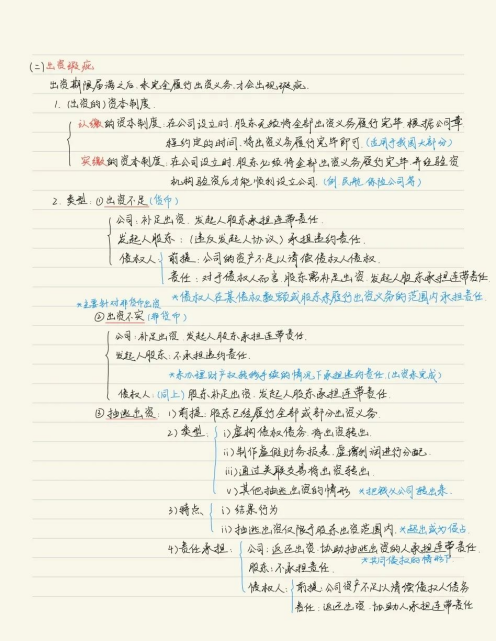 (二)出资瑕疵
出资期限届满之后,未完全履行出资义务,才会出现瑕疵.
1. (出资的)资本制度.
认缴的资本制度:在公司设立时,股东无须将全部出资义务履行完毕,根据公司章
程约定的时间,将出资义务履行完毕即可.(适用于我国大部分)
实缴的资本制度:在公司设立时,股东必须将全部出资义务履行完毕,并经验资
机构验资后才能顺利设立公司.(例.民航.保险公司等)
2. 类型:①出资不足(货币)
公司:补足出资.发起人股东承担连带责任.
发起人股东:(违反发起人协议)承担违约责任.
债权人:前提:公司的资产不足以清偿债权人债权.
责任:对于债权人而言,股东需补足出资,发起人股东承担连带责任.
*债权人在某债权数额或股东未履行出资义务的范围内承担责任.
*主要针对非货币出资
②出资不实(非货币)
公司:补足出资.发起人股东承担连带责任.
发起人股东:不承担违约责任.
*未办理财产权转移手续的情况下承担违约责任.(出资未完成)
债权人:(同上)股东补足出资.发起人股东承担连带责任.
③抽逃出资:1)前提:股东已经履行全部或部分出资义务.
2)类型:i)虚构债权债务,将出资转出.
ii)制作虚假财务报表,虚增利润进行分配.
iii)通过关联交易将出资转出.
v)其他抽逃出资的情形 *把钱从公司转出来.
3)特点:i)结果行为
ii)抽逃出资仅限于股东出资范围内.*超出成为侵占.
4)责任承担:公司:返还出资.协助抽逃出资的人承担连带责任.
*共同侵权的情形下.
股东:不承担责任.
债权人:前提:公司资产不足以清偿债权人债务
责任:返还出资.协助人承担连带责任